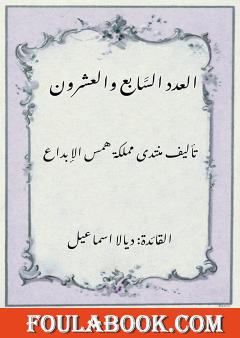 العدد السَّابع والعشرون
تأليف منتدى مملكة همس الإبداع
القائدة: ديالا اسماعيل
FOULABOOK.COM